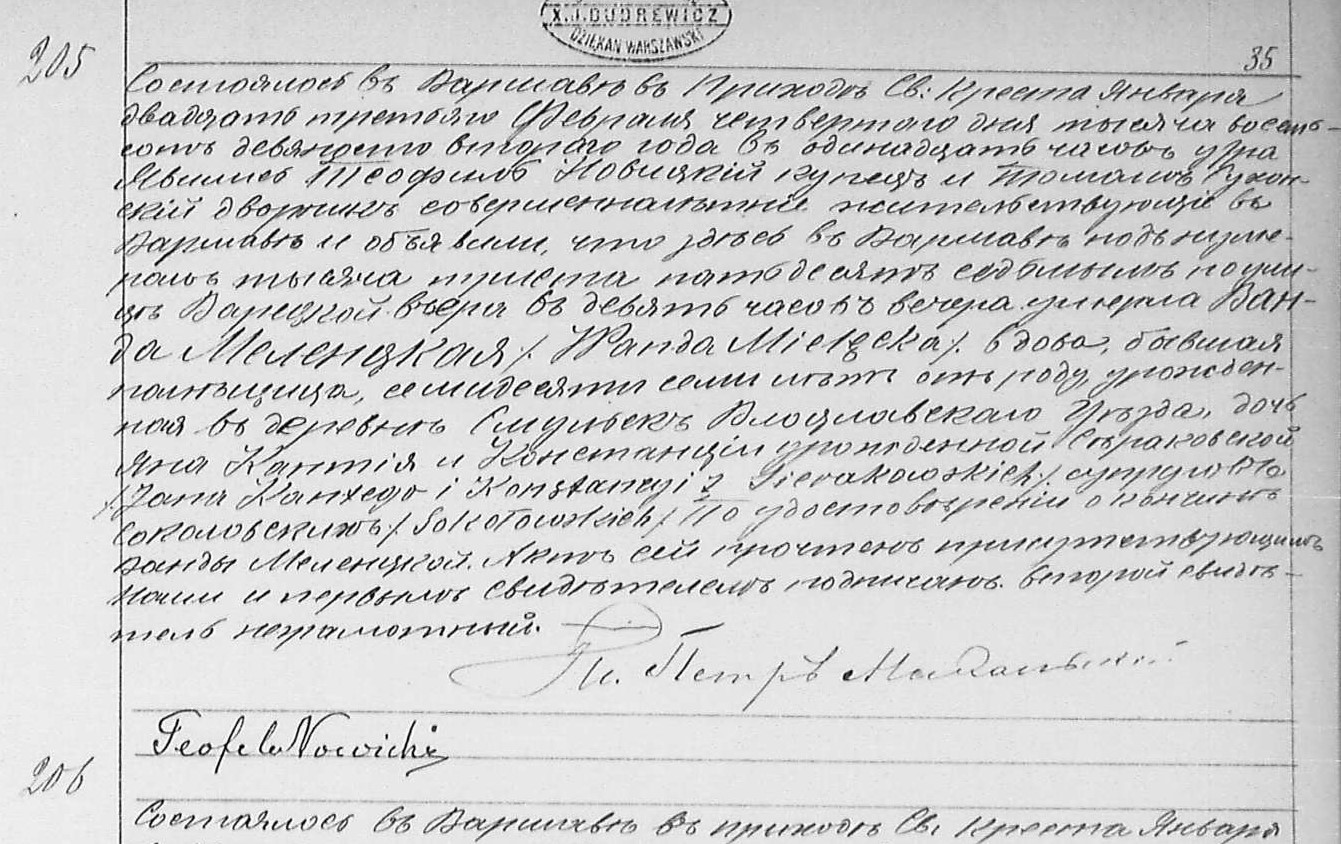 X.J.DUDREWICZ
DZIEKAN WARSZAWSKI
205
35
Состоялось въ Варшавѣ въ Приходѣ Св: Креста Января
двадцать третьяго Февраля четвертаго дня тысяча восемь-
сотъ девяносто втораго года въ одинадцать часовъ утра
Явились Теофилъ Новицкій купецъ и Томашъ
скій дворникъ совершеннолѣтніе жительствующіе въ
Варшавѣ и объявили, что здѣсь въ Варшавѣ подъ нуме-
ромъ тысяча триста пятьдесятъ седьмымъ по ули-
цѣ Варецкой вчера въ девять часовъ вечера умерла Ван-
да Меленцкая /. Wanda Mielęcka /. вдова, бывшая
помѣщица, семидесяти семи лѣтъ отъ роду, урожден-
ная въ деревнѣ Смульскъ Влоцлавскаго Уѣзда, дочь
Яна Кантія и Констанціи урожденной Сѣраковской
/Jana Kantego i Konstancyi z Sierakowskich/. супруговъ
Соколовскихъ /. Sokołowskich /. По удостовѣреніи о кончинѣ
Ванды Меленцкой. Актъ сей прочтенъ присутствующимъ
Нами и первымъ свидѣтелемъ подписанъ. второй свидѣ-
тель неграмотный.
Кс. Петръ
Teofil Nowicki
206
Состоялось въ Варшавѣ въ приходѣ Св. Креста Января